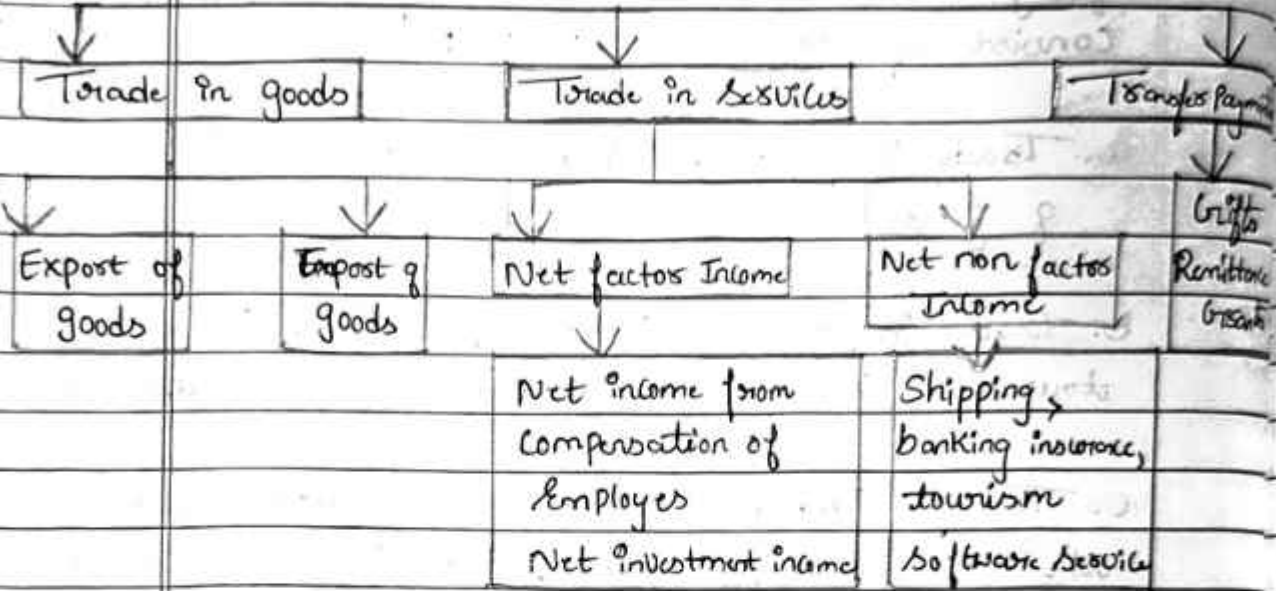 Trade in goods
Trade in services
Transfer Paym
Export of
goods
Import of
goods
Net factor Income
Net non factor
Income
Gifts
Remittance
Grants
Net income from
compensation of
Employes
Net investment income
Shipping,
banking insurance,
tourism
software service